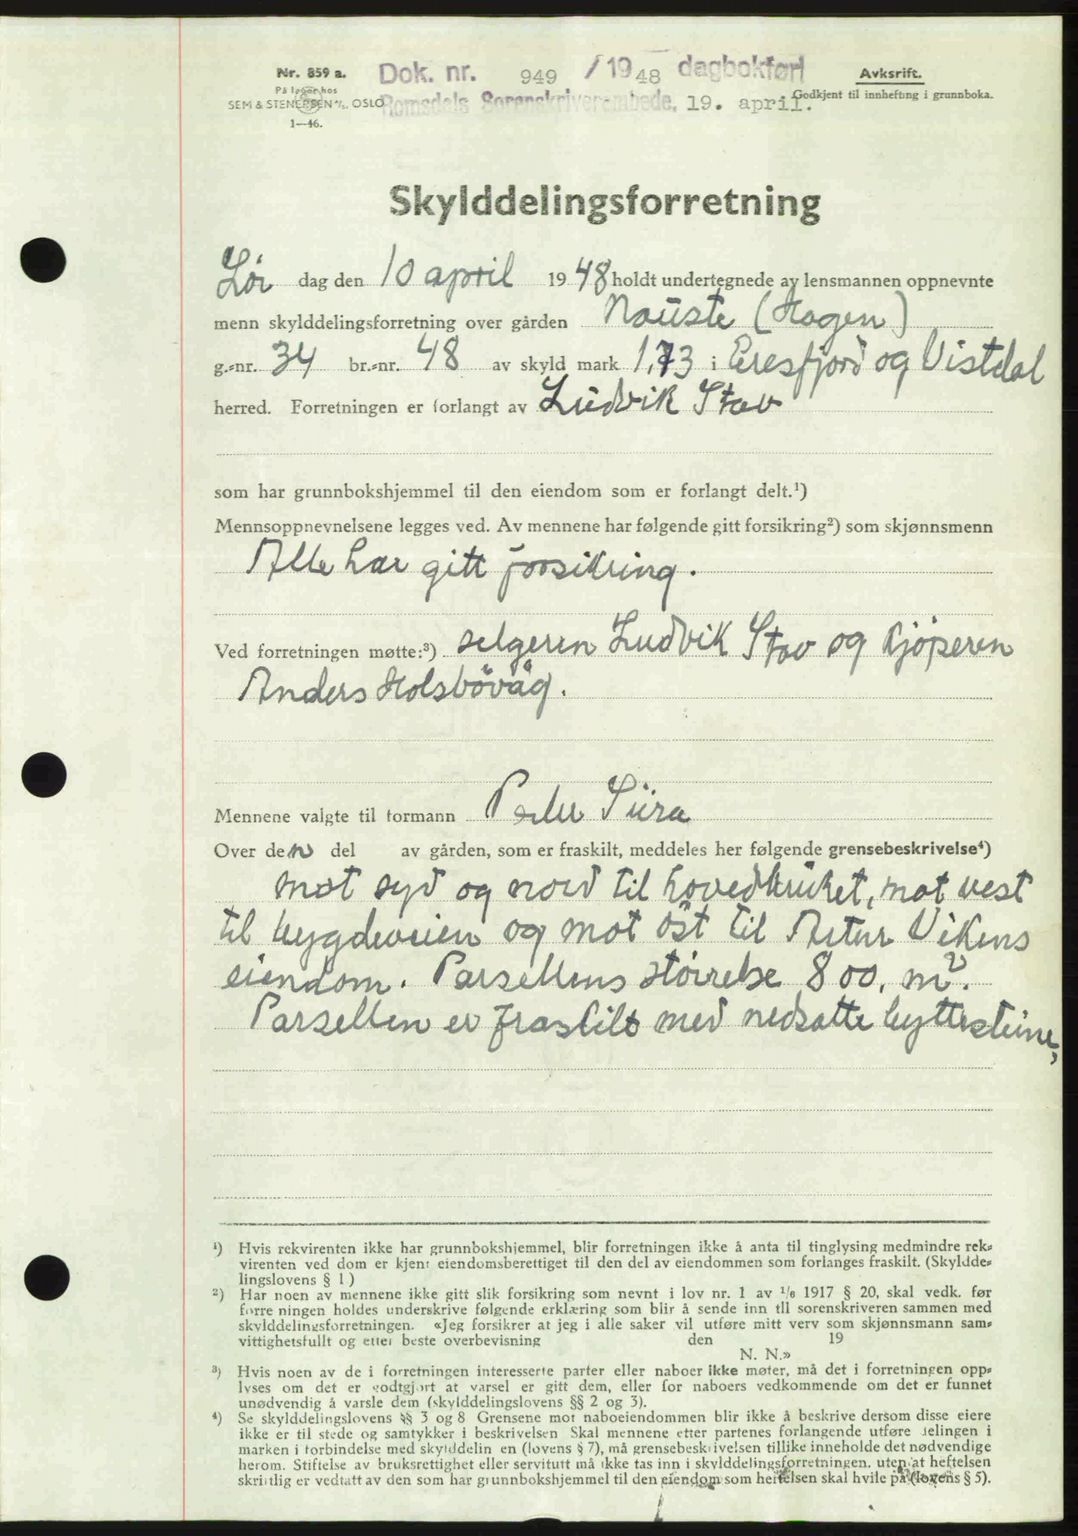 Nr. 859 a.
På lager hos
SEM & STENERSEN A/S. OSLO
1—46.
Dok. nr. 949 /1948 dagbokført
Romsdals Sorenskriverembede, 19. april.
Avksrift.
Godkjent til innhefting i grunnboka.
Skylddelingsforretning
Lör dag den 10 april 1948 holdt undertegnede av lensmannen oppnevnte
menn skylddelingsforretning over gården Nauste (Hagen)
g.-nr. 34 br.-nr. 48 av skyld mark 1,73 i Eresfjord og Vistdal
herred. Forretningen er forlangt av Ludvik Stav
som har grunnbokshjemmel til den eiendom som er forlangt delt.¹)
Mennsoppnevnelsene legges ved. Av mennene har følgende gitt forsikring²) som skjønnsmenn
Alle har gitt forsikring.
Ved forretningen møtte:³) selgeren Ludvik Stav og kjöperen
Anders Holsbövåg.
Mennene valgte til formann Peder Sira
Over den del av gården, som er fraskilt, meddeles her følgende grensebeskrivelse⁴)
mot syd og nord til hovedbruket, mot vest
til bygdeveien og mot öst til Artur Vikens
eiendom. Parsellens störrelse 800, m².
Parsellen er fraskilt med nedsatte byttesteine,
¹) Hvis rekvirenten ikke har grunnbokshjemmel, blir forretningen ikke å anta til tinglysing medmindre rek-
virenten ved dom er kjent eiendomsberettiget til den del av eiendommen som forlanges fraskilt. (Skyldde-
lingslovens § 1)
²) Har noen av mennene ikke gitt slik forsikring som nevnt i lov nr. 1 av 1/6 1917 § 20, skal vedk. før
forretningen holdes underskrive følgende erklæring som blir å sende inn til sorenskriveren sammen med
skylddelingsforretningen. «Jeg forsikrer at jeg i alle saker vil utføre mitt verv som skjønnsmann sam-
vittighetsfullt og etter beste overbevisning den 19
N. N.»
³) Hvis noen av de i forretningen interesserte parter eller naboer ikke møter, må det i forretningen opp-
lyses om det er godtgjort at varsel er gitt dem, eller for naboers vedkommende om det er funnet
unødvendig å varsle dem (skylddelingslovens §§ 2 og 3).
⁴) Se skylddelingslovens §§ 3 og 8 Grensene mot naboeiendommen blir ikke å beskrive dersom disse eiere
ikke er til stede og samtykker i beskrivelsen Skal mennene etter partenes forlangende utføre delingen i
marken i forbindelse med skylddelingen (lovens § 7), må grensebeskrivelsen tillike inneholde det nødvendige
herom. Stiftelse av bruksrettighet eller servitutt må ikke tas inn i skylddelingsforretningen, uten at heftelsen
skriftlig er vedtatt av den som har grunnbokshjemmel til den eiendom som heftelsen skal hvile på (lovens § 5).